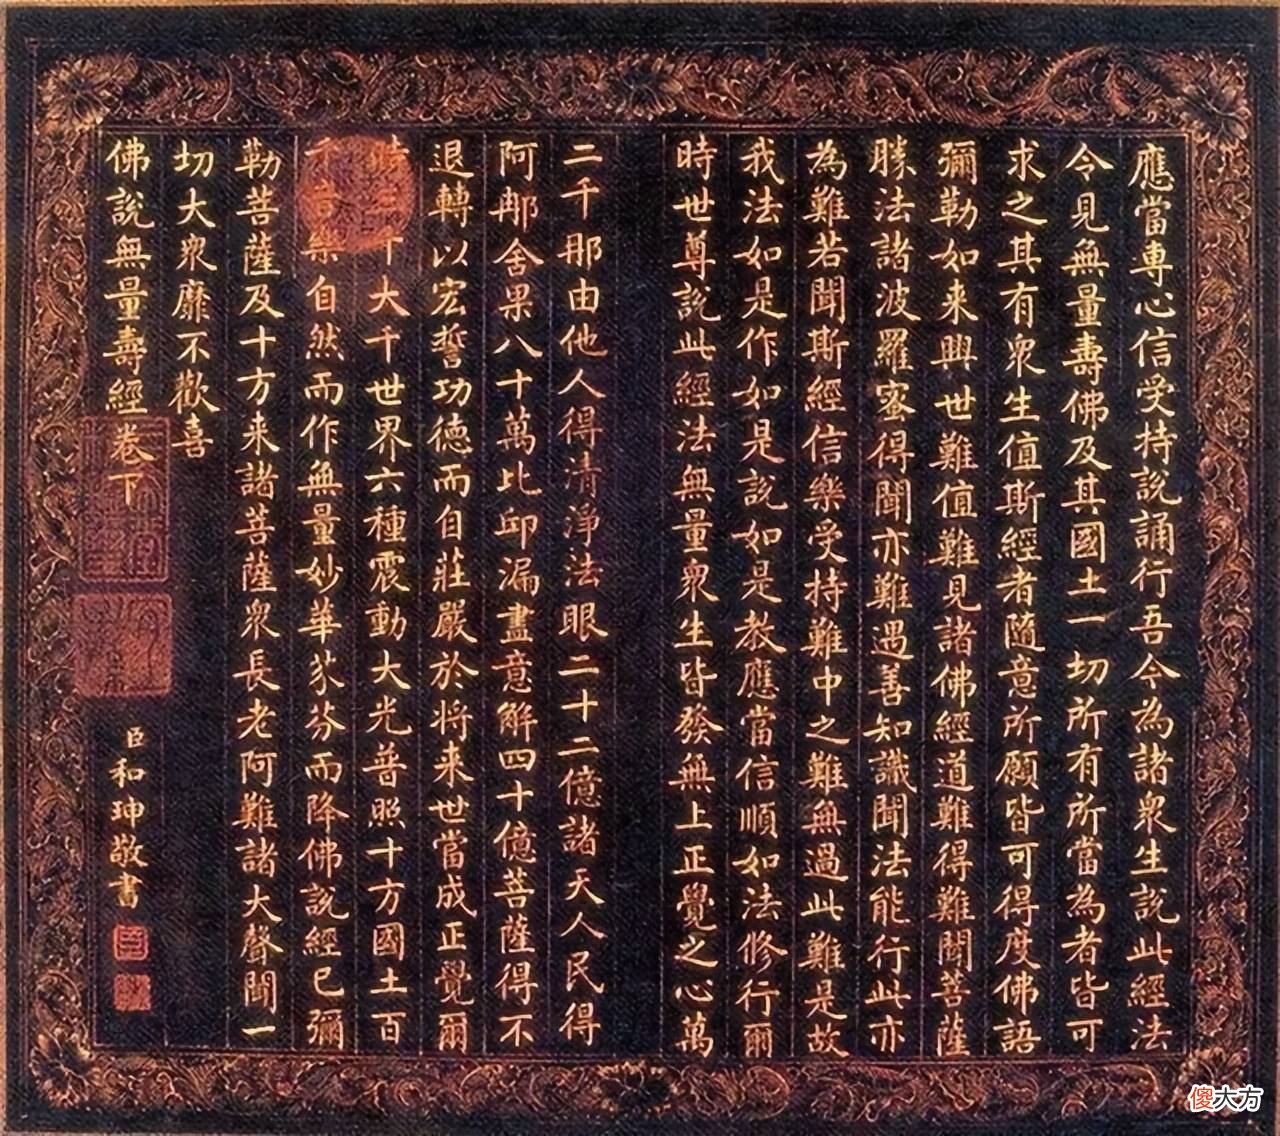 應當專心信受持說誦行吾今為諸衆生說此經法
令見無量壽佛及其國土一切所有所當為者皆可
求之其有衆生值斯經者隨意所願皆可得度佛語
彌勒如来興世難值難見諸佛經道難得難聞菩薩
勝法諸波羅蜜得聞亦難遇善知識聞法能行此亦
為難若聞斯經信樂受持難中之難無過此難是故
我法如是作如是說如是教應當信順如法修行爾
時世尊說此經法無量衆生皆發無上正覺之心萬
二千那由他人得清淨法眼二十二億諸天人民得
阿那舍果八十萬比邱漏盡意解四十億菩薩得不
退轉以宏誓功德而自莊嚴於将来世當成正覺爾
時三千大千世界六種震動大光普照十方國土百
千音樂自然而作無量妙華芬芬而降佛說經已彌
勒菩薩及十方来諸菩薩衆長老阿難諸大聲聞一
切大衆靡不歡喜
佛說無量壽經卷下
臣和珅敬書
傻大方